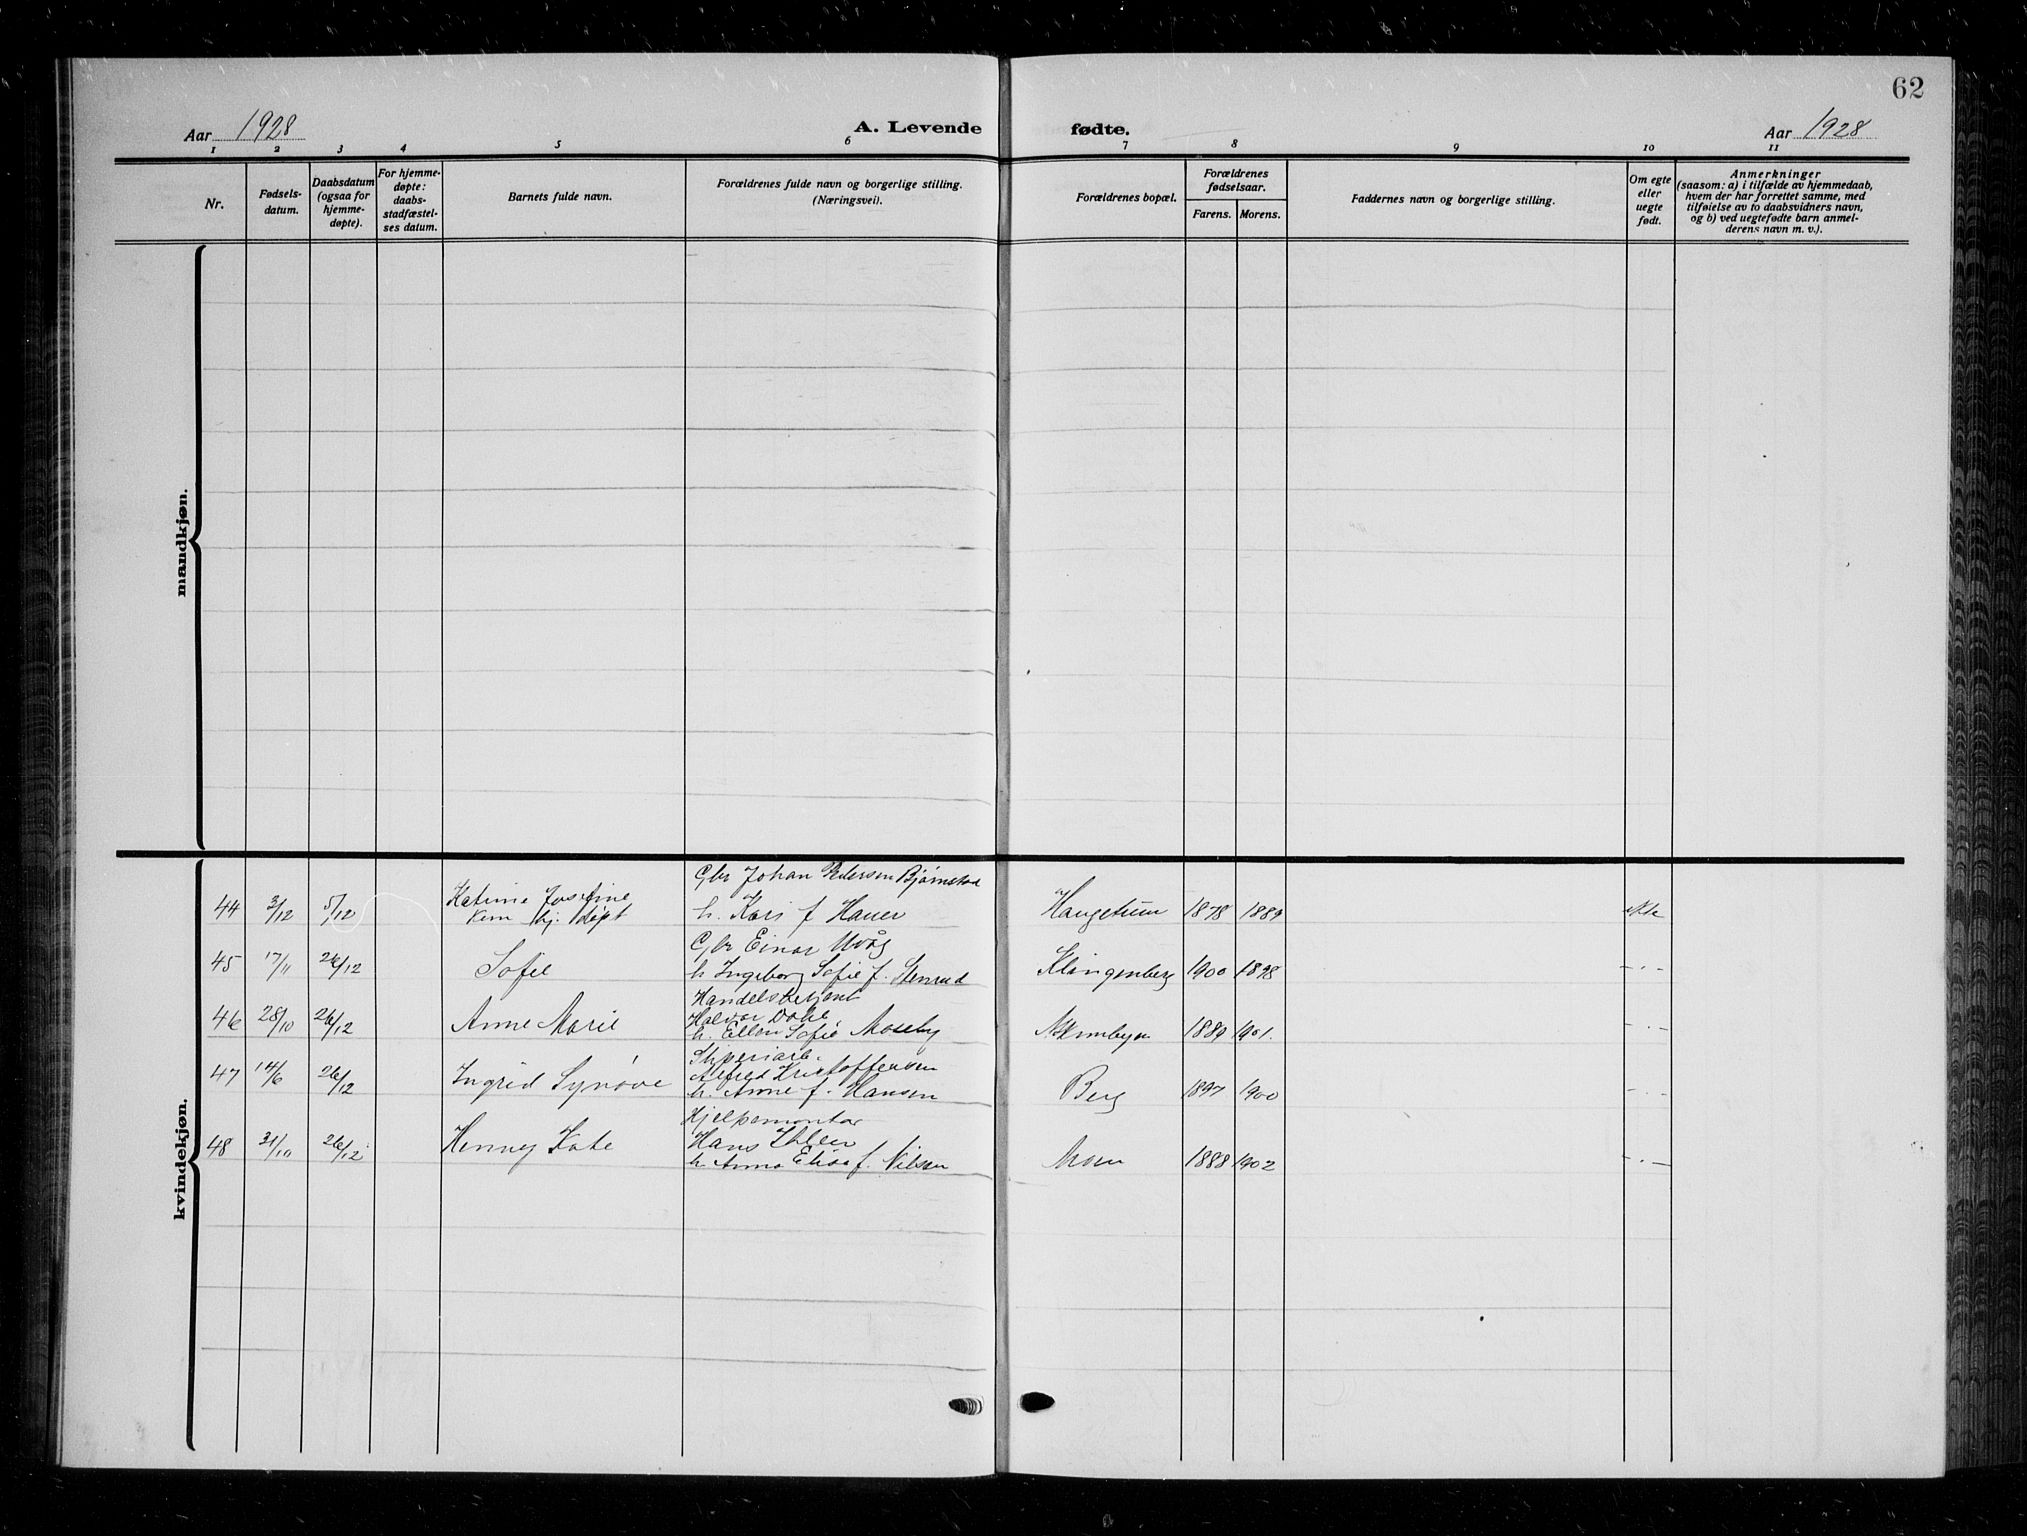 62
Aar 1928
A. Levende
fødte.
Aar 1928
1 2 3 4 5 6 7 8 9 10 11
Nr.
Fødsels-
datum.
Daabsdatum
(ogsaa for
hjemme-
døpte).
For hjemme-
døpte:
daabs-
stadfæstel-
ses datum.
Barnets fulde navn.
Forældrenes fulde navn og borgerlige stilling.
(Næringsvei).
Forældrenes bopæl.
Forældrenes
fødselsaar.
Farens. Morens.
Faddernes navn og borgerlige stilling.
Om egte
eller
uegte
født.
Anmerkninger
(saasom: a) i tilfælde av hjemmedaab,
hvem der har forrettet samme, med
tilføielse av to daabsvidners navn,
og b) ved uegtefødte barn anmel-
derens navn m. v.).
mandkjøn.
kvindekjøn.
Gbr Johan Pedersen Bjørnstad
44 3/12 5/12 Katrine Josefine h. Kari f. Hauer Haugetun 1878 1889 ekte
kun hj. døpt
Gbr Einar
45 17/11 26/12 Sofie h Ingeborg Sofie f. Stenrud Klingenberg 1900 1898 -"-
Handelsbetjent
46 28/10 26/12 Anne Marie Halvor Dahl 1889 1901. -"-
h. Ellen Sofie Moseby
47 14/6 26/12 Ingrid Synøve Alfred Kristoffersen Berg 1897 1900 -"-
h. Anne f. Hansen
Hjelpemontør
48 31/10 26/12 Henny Kate Hans Ihlen Moen 1888 1902 -"-
h. Anna Elise f. Nilsen